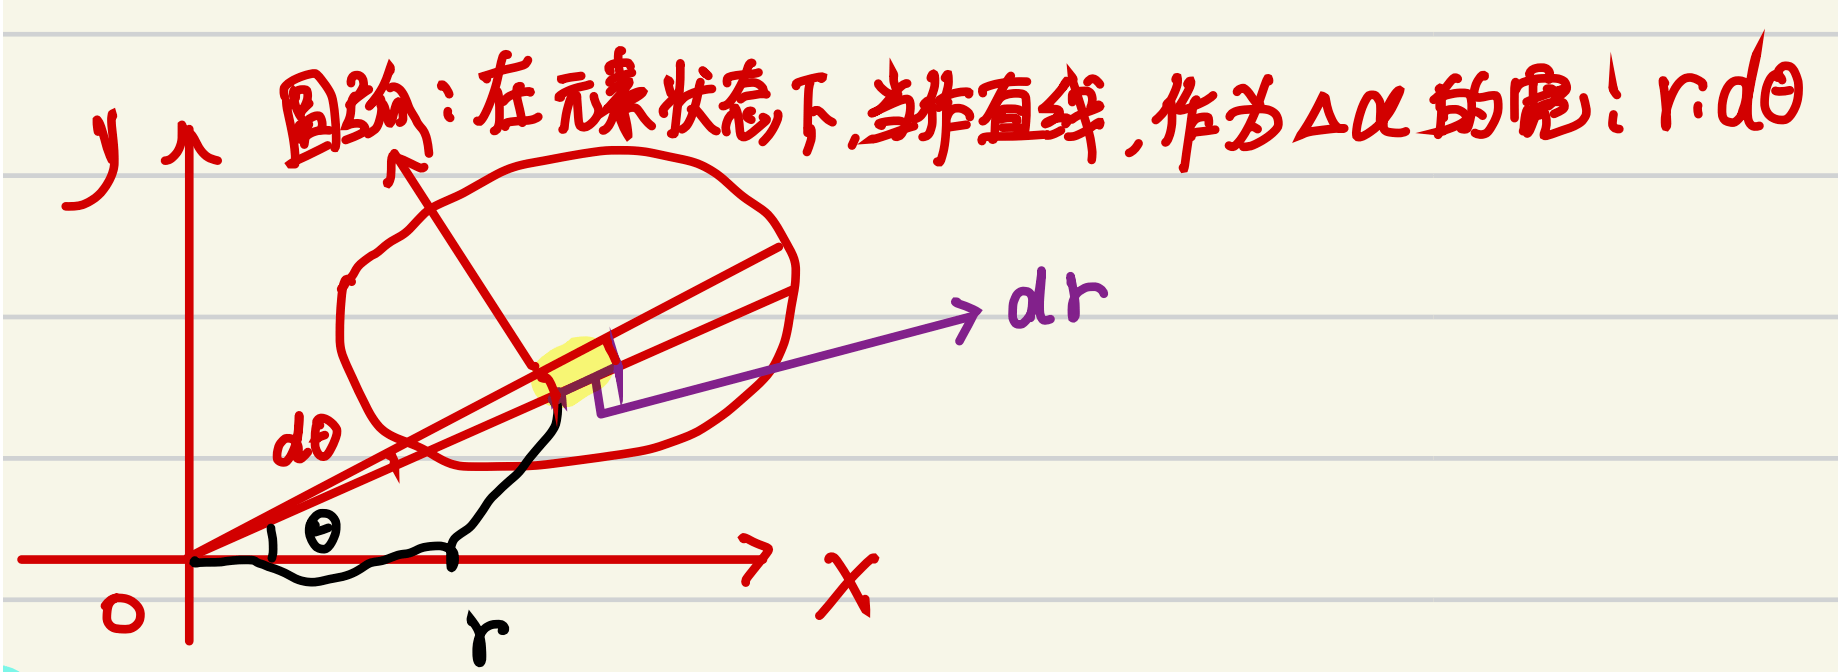 y
圆弧:在元素状态下,当作直线,作为Δα的宽!r·dθ
dr
dθ
θ
x
o
r